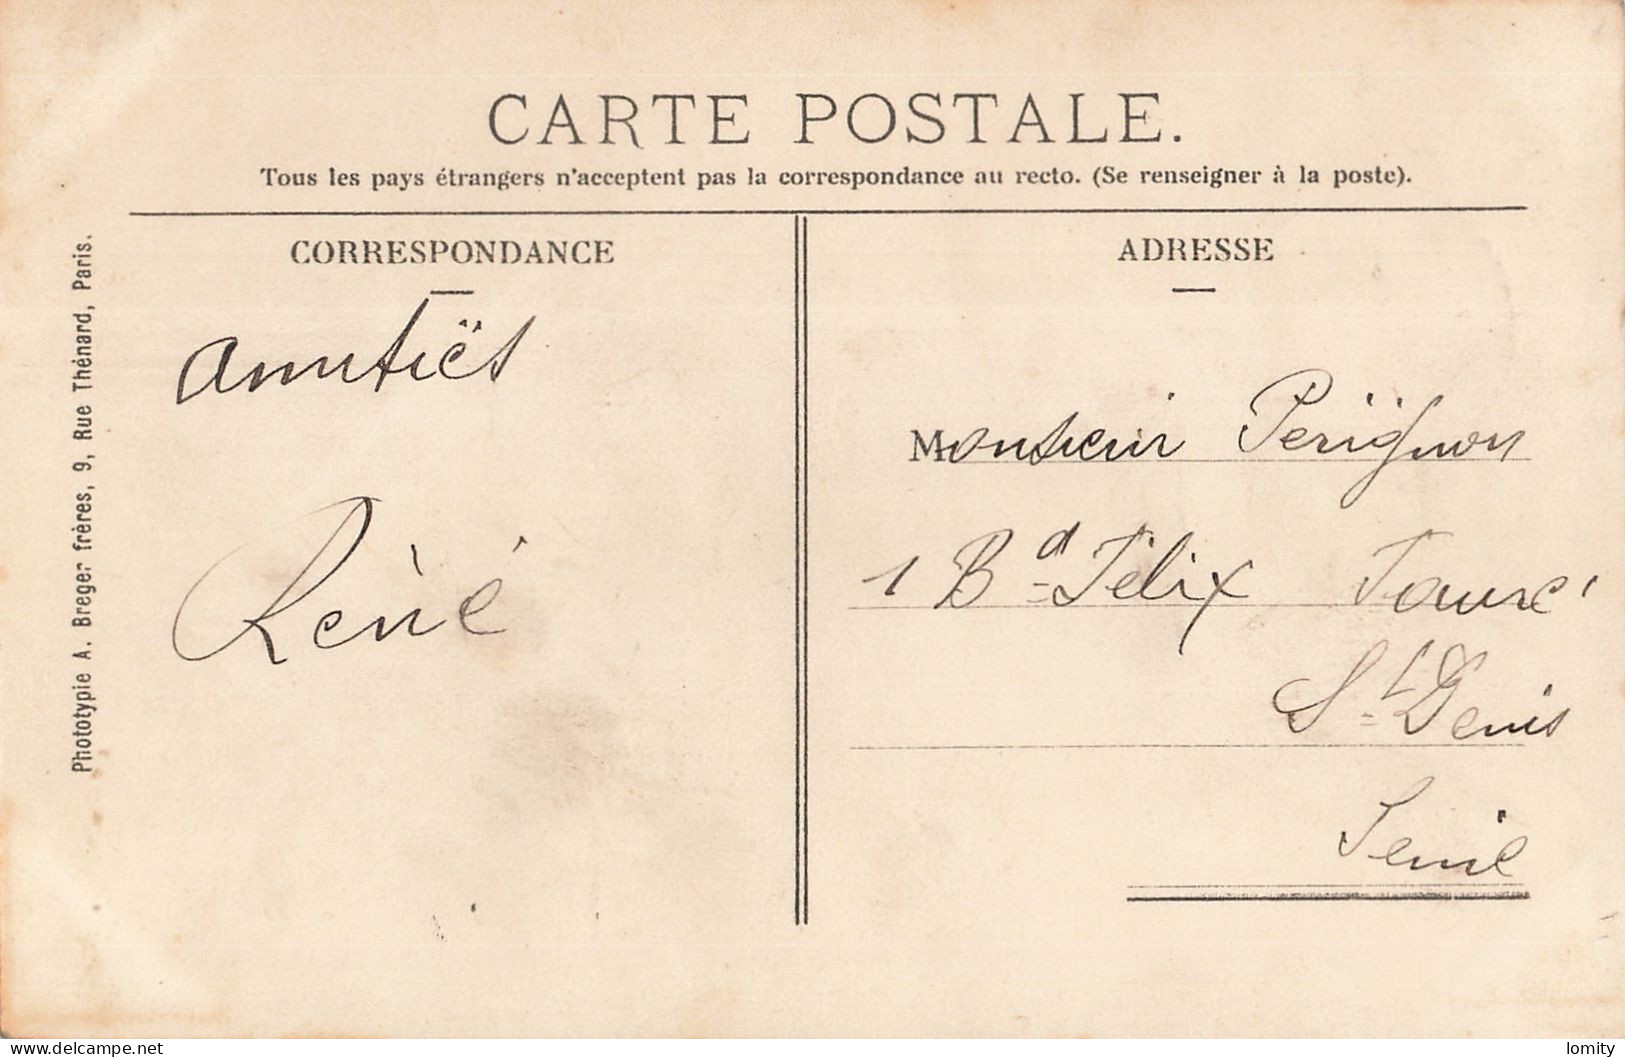 CARTE POSTALE.
Tous les pays étrangers n'acceptent pas la correspondance au recto. (Se renseigner à la poste).
CORRESPONDANCE
amitiés
René
ADRESSE
Monsieur Pérignon
1 Bd Félix Faure
St Denis
Seine
Phototypie A. Breger frères, 9, Rue Thénard, Paris.
delcampe.net
lomity